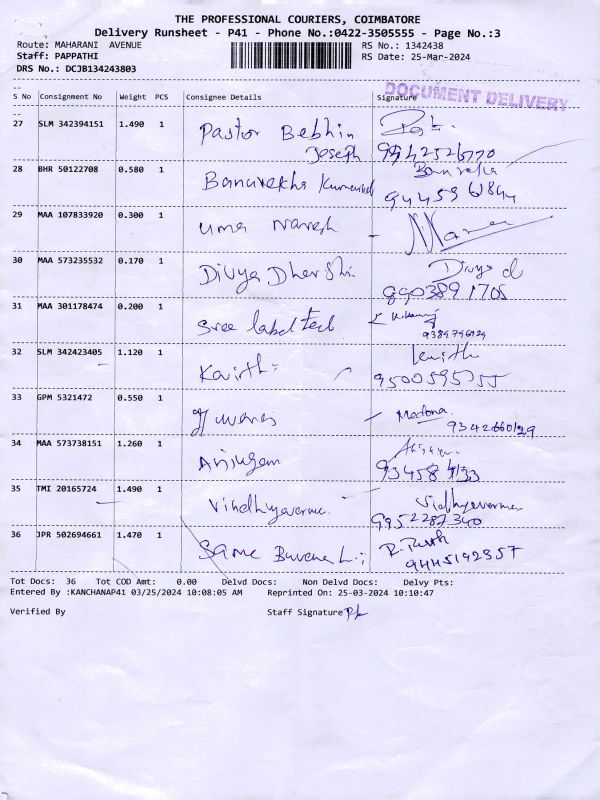 THE PROFESSIONAL COURIERS, COIMBATORE
Delivery Runsheet - P41 - Phone No.:0422-3505555 - Page No.:3
Route: MAHARANI AVENUE
RS No.: 1342438
Staff: PAPPATHI
RS Date: 25-Mar-2024
DRS No.: DCJB134243803
DOCUMENT DELIVERY
S No Consignment No Weight PCS Consignee Details Signature
27 SLM 342394151 1.490 1 Pastor Bebhin
Joseph
28 BHR 50122708 0.580 1
29 MAA 107833920 0.300 1 Uma Naresh
30 MAA 573235532 0.170 1 Divya Dharshi Divya d
8903891705
31 MAA 301178474 0.200 1 Sree label tech
32 SLM 342423405 1.120 1 Kavitha
33 GPM 5321472 0.550 1 Madona
9342660129
34 MAA 573738151 1.260 1 Anjugam
35 TMI 20165724 1.490 1 Vindhyavarma Vidhyavarma
9952287340
36 JPR 502694661 1.470 1
9445192357
Tot Docs: 36 Tot COD Amt: 0.00 Delvd Docs: Non Delvd Docs: Delvy Pts:
Entered By :KANCHANAP41 03/25/2024 10:08:05 AM Reprinted On: 25-03-2024 10:10:47
Verified By Staff Signature